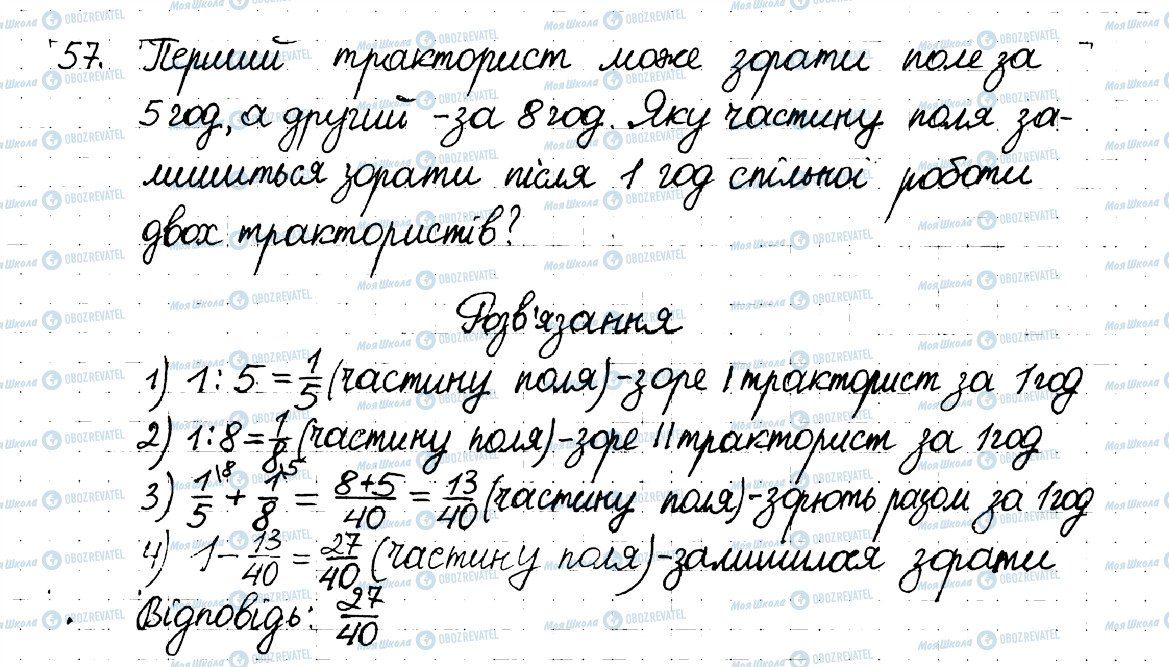 57. Перший тракторист може зорати поле за
5 год, а другий - за 8 год. Яку частину поля за-
лишиться зорати після 1 год спільної роботи
двох трактористів?
Розв'язання
1) 1 : 5 = 1/5 (частину поля) - зоре І тракторист за 1 год
2) 1 : 8 = 1/8 (частину поля) - зоре ІІ тракторист за 1 год
3) 1/5 \8 + 1/8 \5 = 8+5/40 = 13/40 (частину поля) - зорють разом за 1 год
4) 1 - 13/40 = 27/40 (частину поля) - залишилася зорати
Відповідь: 27/40
МояШкола OBOZREVATEL